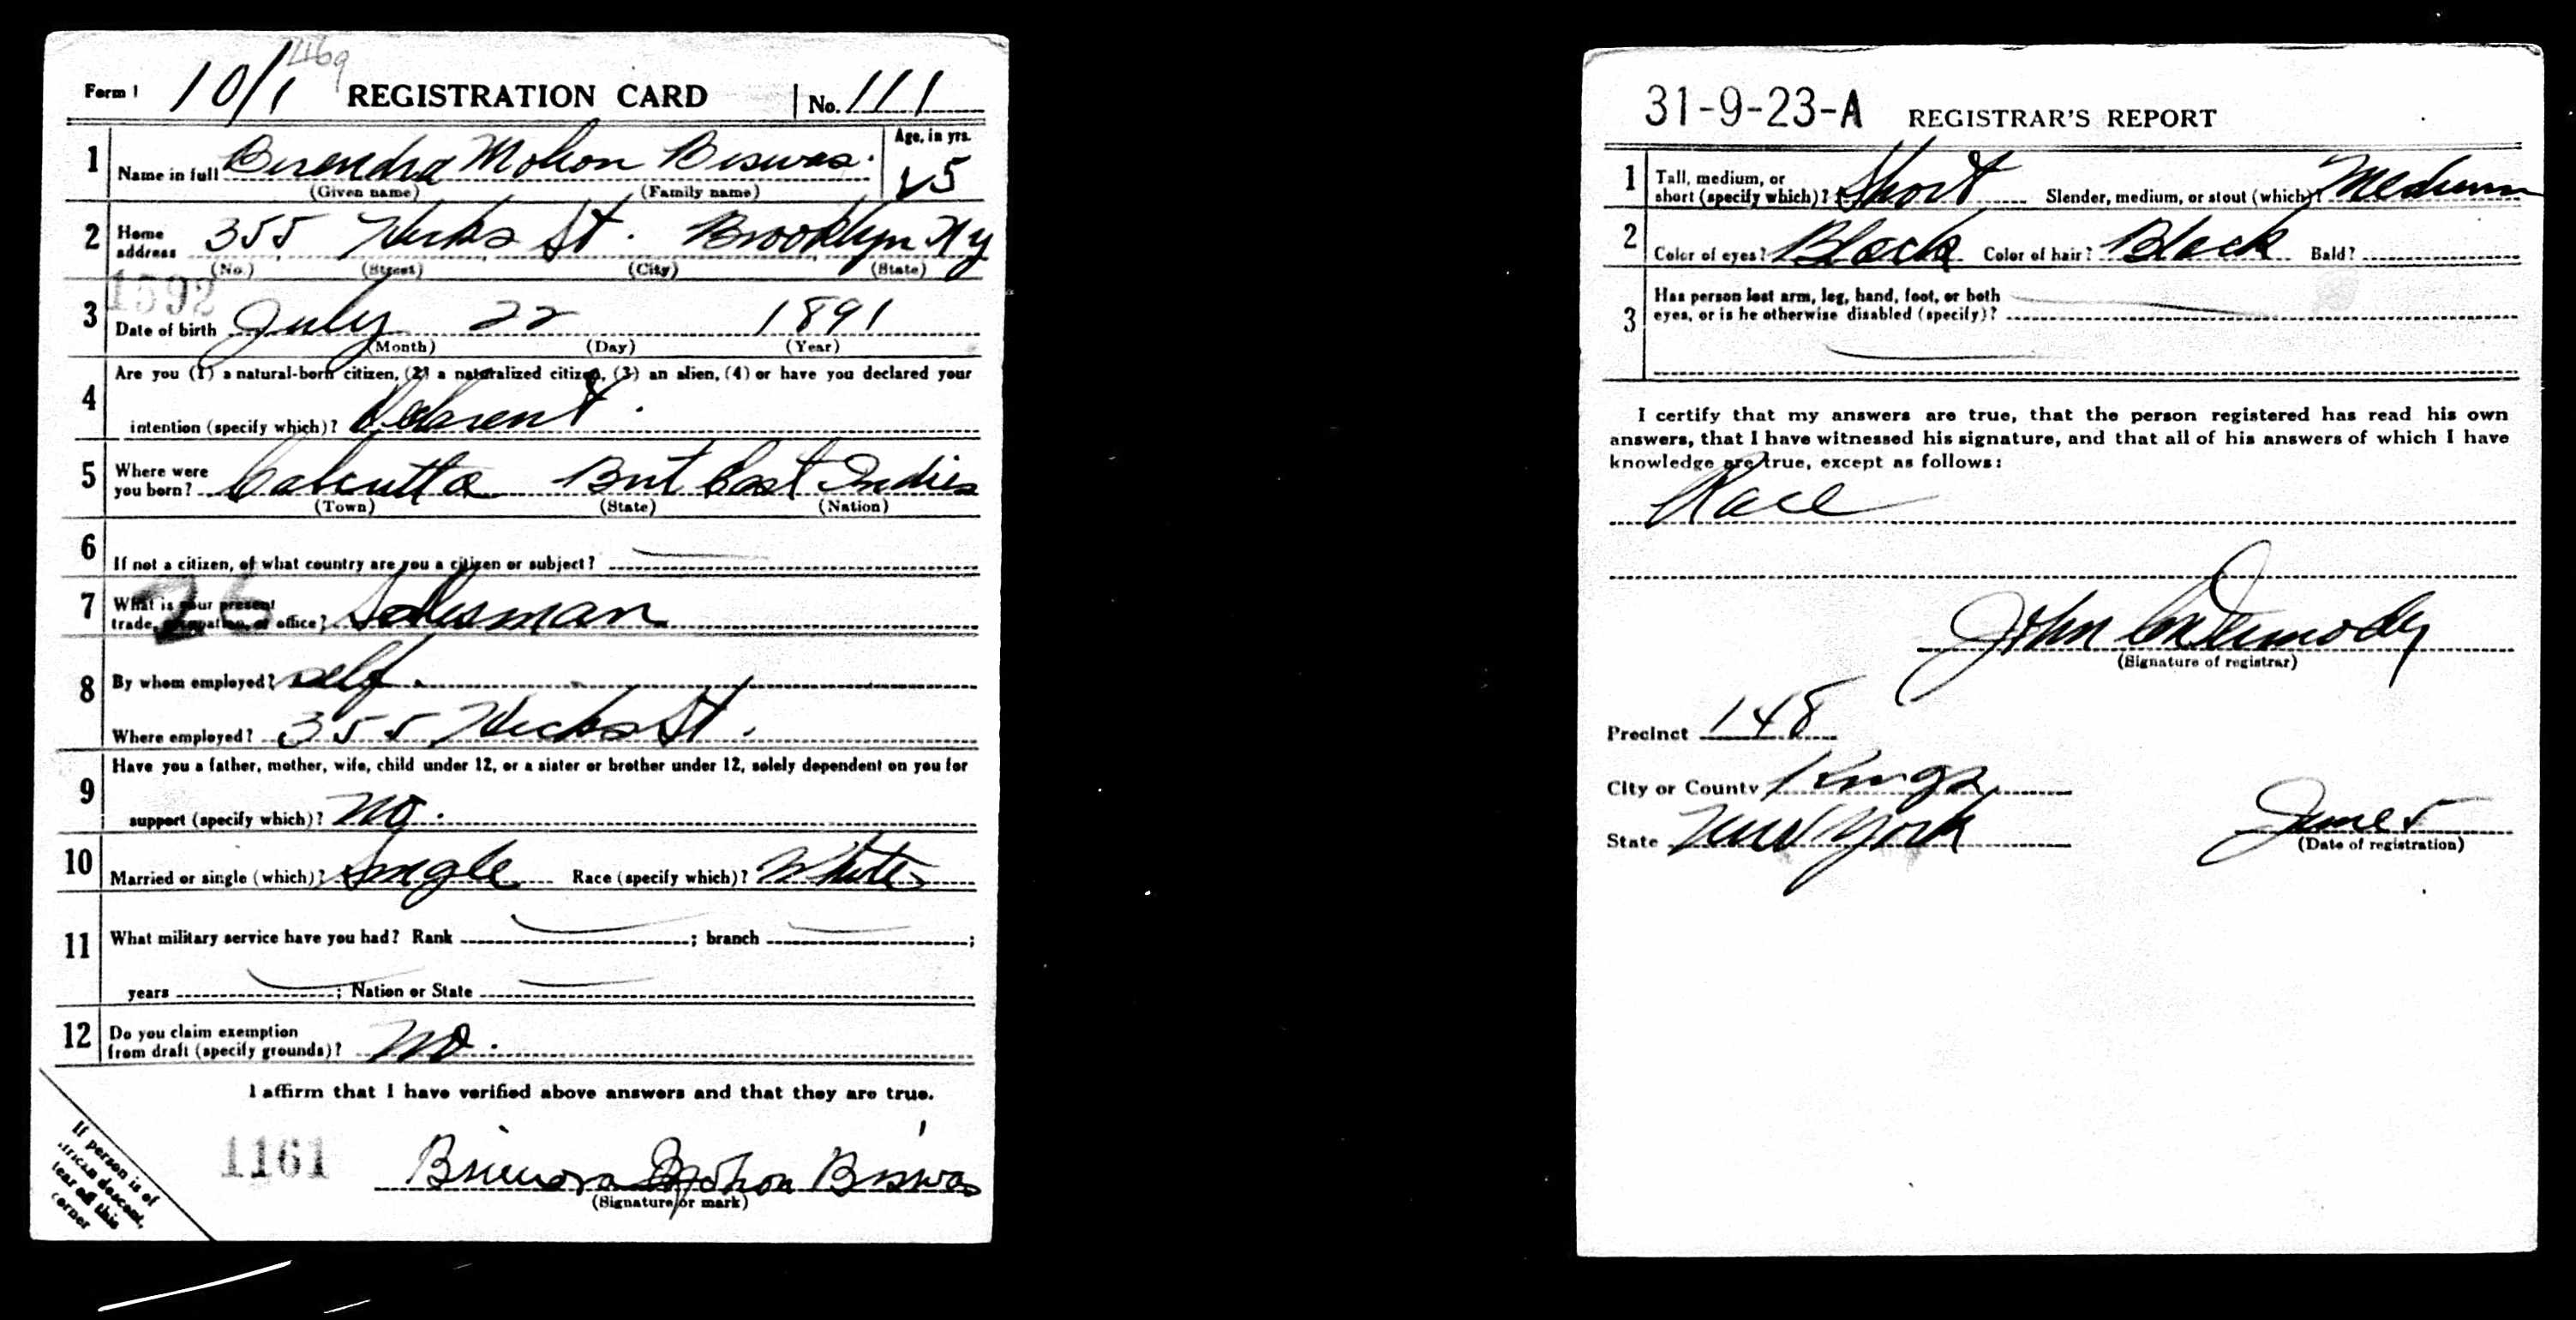 Form 1 10/1 469 REGISTRATION CARD No. 111
1 Name in full Berendra Mohon Biswas. Age, in yrs. 25
(Given name) (Family name)
2 Home address 355 Hicks St. Brooklyn NY
(No.) (Street) (City) (State)
1592
3 Date of birth July 22 1891
(Month) (Day) (Year)
4 Are you (1) a natural-born citizen, (2) a naturalized citizen, (3) an alien, (4) or have you declared your
intention (specify which)? Declarent.
5 Where were you born? Calcutta Brit East Indies
(Town) (State) (Nation)
6 If not a citizen, of what country are you a citizen or subject?
26
7 What is your present
trade, occupation, or office? Salesman
8 By whom employed? Self.
Where employed? 355 Hicks St.
9 Have you a father, mother, wife, child under 12, or a sister or brother under 12, solely dependent on you for
support (specify which)? No.
10 Married or single (which)? Single Race (specify which)? White
11 What military service have you had? Rank ; branch ;
years ; Nation or State
12 Do you claim exemption
from draft (specify grounds)? No.
I affirm that I have verified above answers and that they are true.
1161
Mohon Biswas
(Signature or mark)
If person is of
African descent,
tear off this
corner
31-9-23-A REGISTRAR'S REPORT
1 Tall, medium, or
short (specify which)? Short Slender, medium, or stout (which)? Medium
2 Color of eyes? Black Color of hair? Black Bald?
3 Has person lost arm, leg, hand, foot, or both
eyes, or is he otherwise disabled (specify)?
I certify that my answers are true, that the person registered has read his own
answers, that I have witnessed his signature, and that all of his answers of which I have
knowledge are true, except as follows:
Race
John
(Signature of registrar)
Precinct 148
City or County Kings
State New York June 5
(Date of registration)